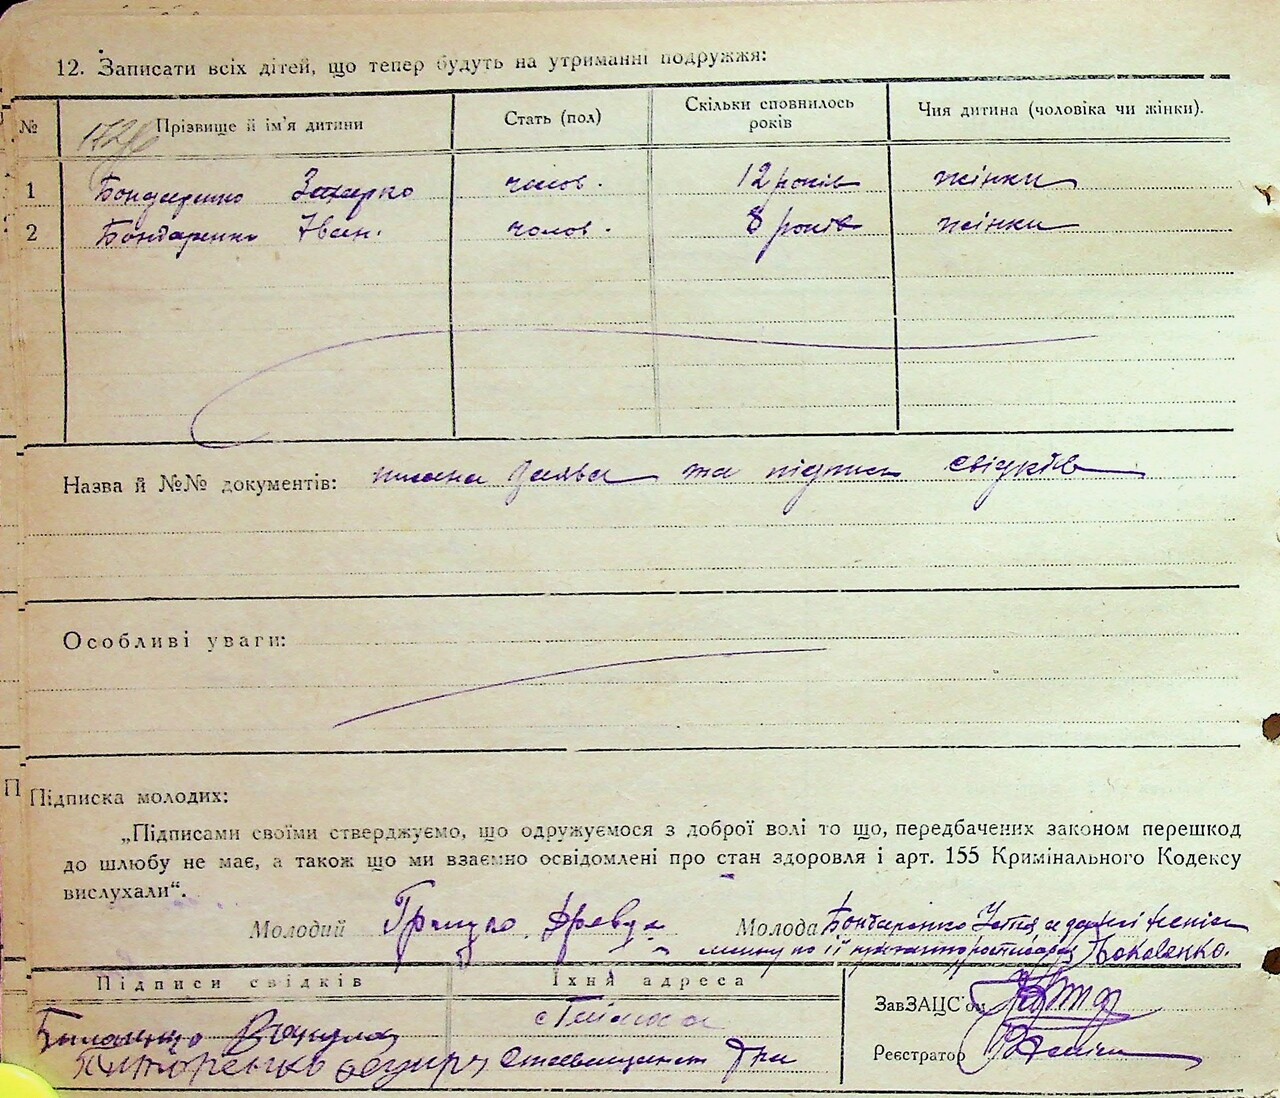 12. Записати всіх дітей, що тепер будуть на утриманні подружжя:
№ Прізвище й ім'я дитини Стать (пол) Скільки сповнилось років Чия дитина (чоловіка чи жінки).
1 Бондаренко Захарко чолов. 12 років жінки
2 Бондаренко Іван. чолов. 8 років жінки
Назва й №№ документів: писана заява та підпись свідків
Особливі уваги:
П
Підписка молодих:
„Підписами своїми стверджуємо, що одружуємося з доброї волі то що, передбачених законом перешкод
до шлюбу не має, а також що ми взаємно освідомлені про стан здоровля і арт. 155 Кримінального Кодексу
вислухали“.
Молодий Молода Бондаренко
Підписи свідків Їхня адреса
ЗавЗАЦС'ом
Реєстратор